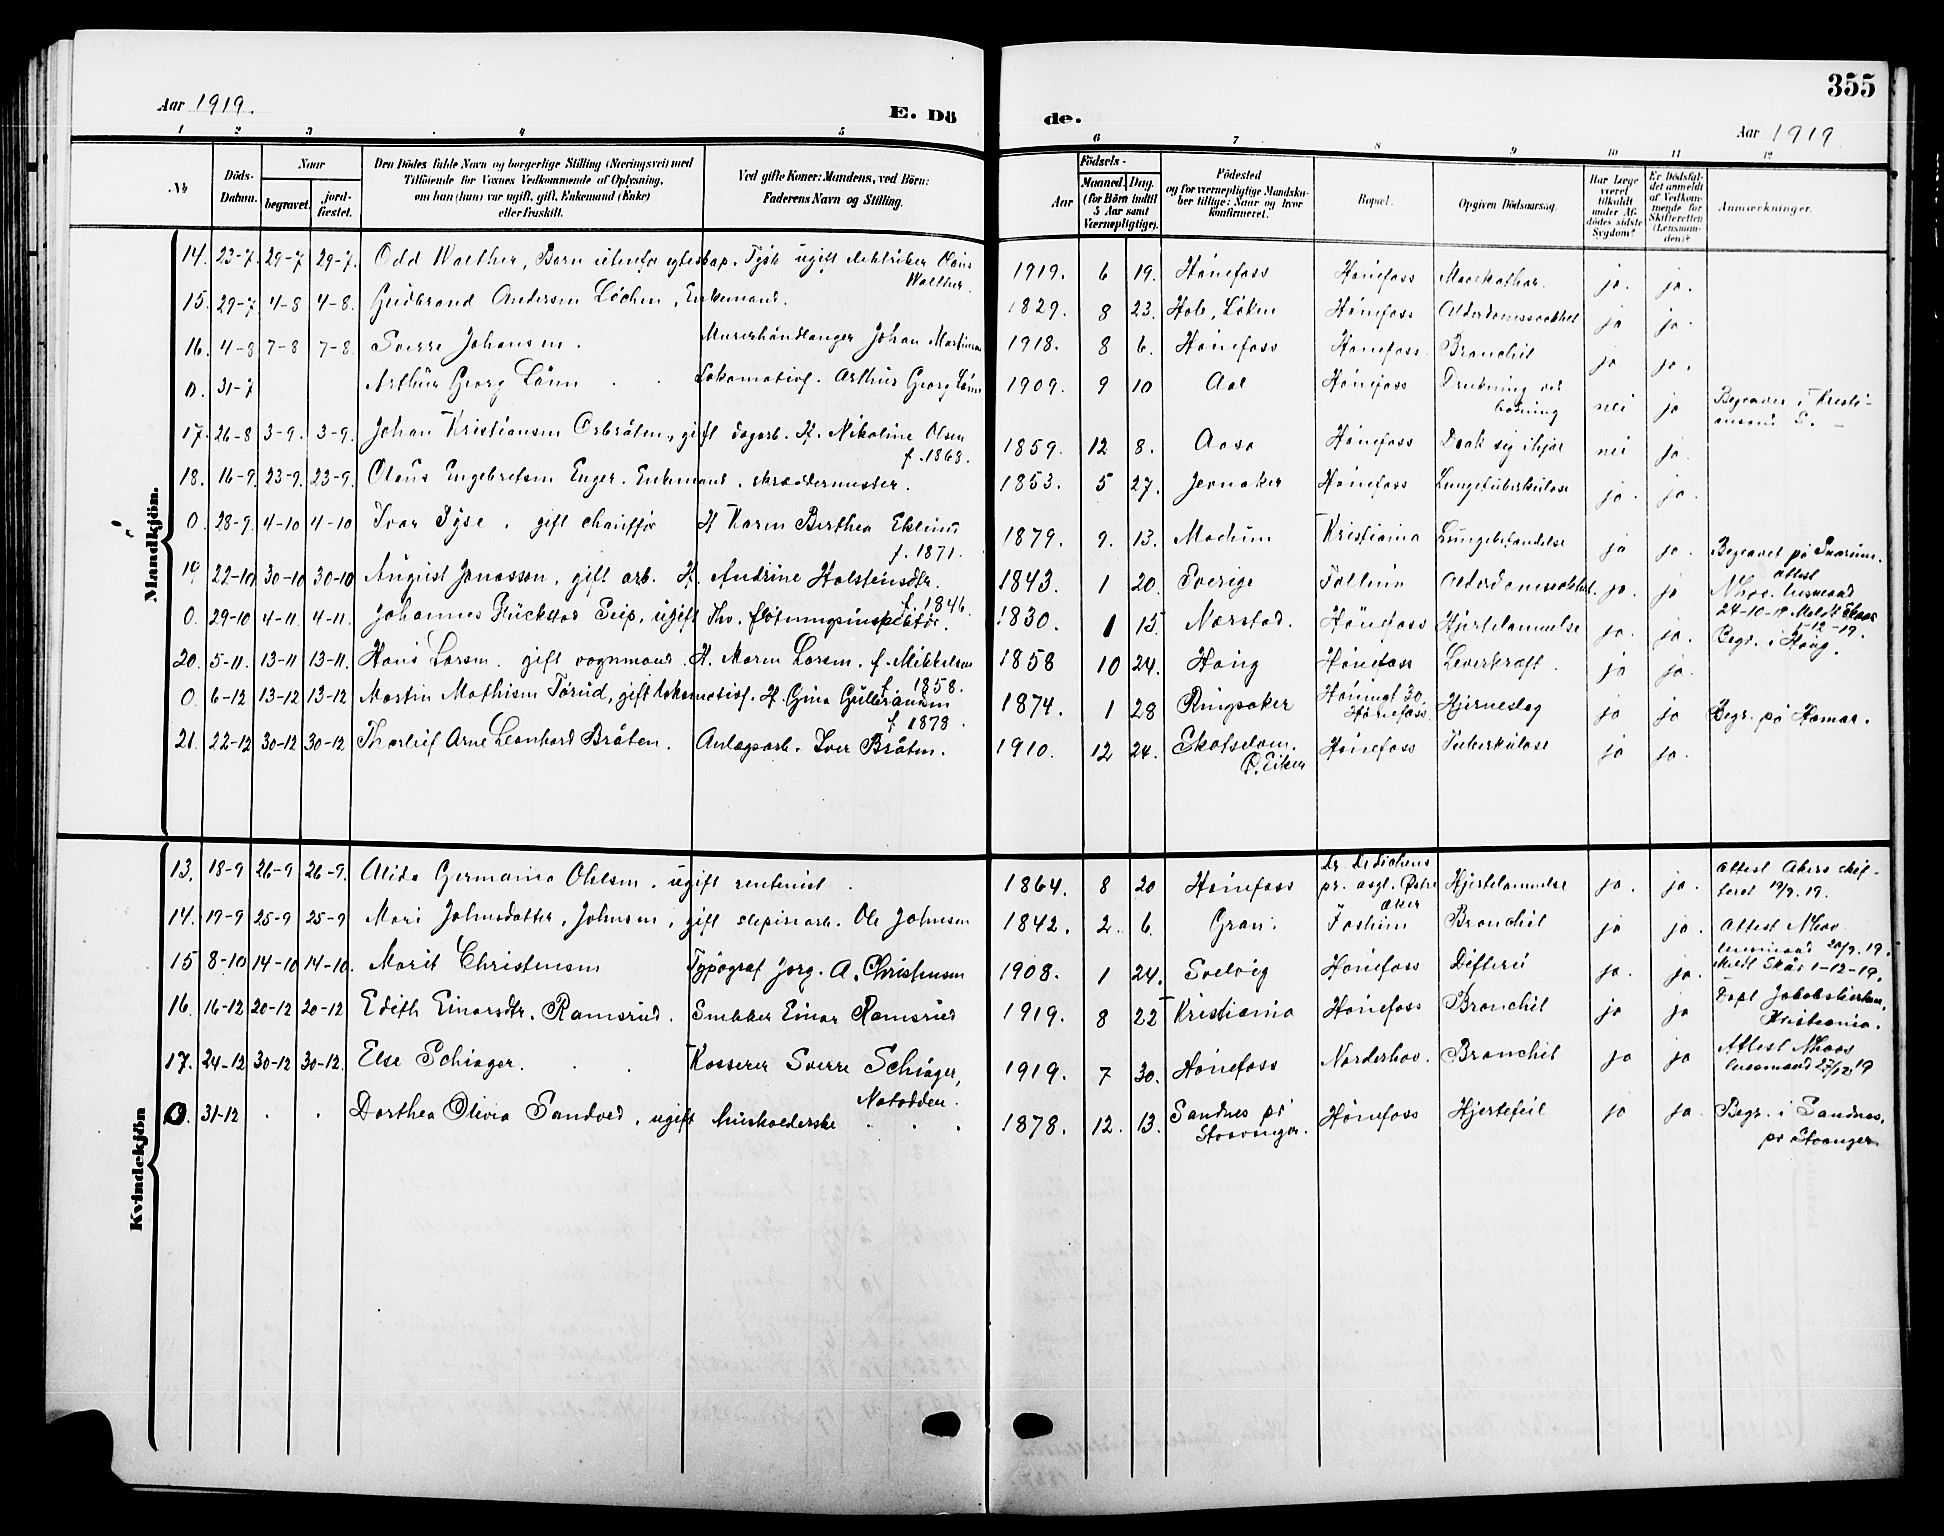 355
Aar 1919.
E. Dö
de.
Aar 1919
1 2 3 4 5 6 7 8 9 10 11 12
No.
Döds-Datum.
Naar
begravet.
jord-fæstet.
Den Dödes fulde Navn og borgerlige Stilling (Næringsvei) med
Tilföiende for Voxnes Vedkommende af Oplysning,
om han (hun) var ugift, gift, Enkemand (Enke)
eller fraskilt.
Ved gifte Koner: Mandens, ved Börn:
Faderens Navn og Stilling.
Födsels-
Aar
Maaned. Dag.
(for Börn indtil
5 Aar samt
Værnepligtige).
Födested
og for værnepligtige Mandska-
ber tillige: Naar og hvor
konfirmeret.
Bopæl.
Opgiven Dödsaarsag.
Har Læge
været
tilkaldt
under Af-
dödes sidste
Sygdom?
Er Dödsfal-
det anmeldt
af Vedkom-
mende for
Skifteretten
(Lensman-
den)?
Anmærkninger.
Mandkjön.
14. 23-7. 29-7 29-7. Odd Walther, Barn utenfor egteskap. Tysk ugift elektriker Claus Walther. 1919. 6 19. Hönefoss Hönefoss Mavekathar. ja. ja.
15. 29-7 4-8 4-8. Gudbrand Andersen Löchen, Enkemand. 1829. 8 23. Hole, Löken Hönefoss Alderdomssvakhet ja ja.
16. 4-8 7-8 7-8. Sverre Johansen. Murerhåndlanger Johan Martinsen 1918. 8 6. Hönefoss Hönefoss. Bronchit ja ja.
0. 31-7 Arthur Georg Lönn Lokomotivf. Arthur Georg Lönn 1909. 9 10 Aal Hönefoss Drukning ved badning nei ja Begravet i Kristi-
ansand S. -
17. 26-8 3-9. 3-9. Johan Kristiansen Orbråten, gift dagarb. H. Nikoline Olsen f. 1868. 1859. 12 8. Aasa Hönefoss Drak sig ihjæl nei ja.
18. 16-9. 23-9. 23-9. Olaus Engebretsen Enger. Enkemand. skræddermester. 1853. 5 27. Jevnaker Hönefoss Lungetuberkulose ja. ja.
0. 28-9. 4-10 4-10 Ivar Dyse, gift chauffør H. Karen Berthea Eklund f. 1871. 1879. 9. 13. Modum Kristiania Lungebetændelse ja ja. Begravet på Snarum.
19 22-10 30-10 30-10 August Jonassen, gift arb. H. Andrine Holstensdtr. f. 1846. 1843. 1 20. Sverige Follum Alderdomssvakhet. ja. ja attest Nhov. lensmand
24-10-19 Meldt Skar 1-12-19.
0. 29-10 4-11. 4-11. Johannes Glückstad Seip, ugift Fhv. flötningsinspektör. 1830. 1 15. Norstad. Hönefoss Hjertelammelse ja. ja. Begr. i Haug.
20. 5-11. 13-11 13-11. Hans Larsen. gift vognmand. H. Maren Larsen. f. Mikkelsen f. 1858. 1858 10 24. Haug Hönefoss Leverkræft. ja ja.
0. 6-12 13-12 13-12 Martin Mathisen Torud, gift lokomotivf. H. Gina Gulbransen f. 1878. 1874. 1 28 Ringsaker Hönengt 30 Hönefoss. Hjerneslag ja ja Begr. på Hamar.
21. 22-12 30-12 30-12 Thorleif Arne Leonhard Bråten. Anlægsarb. Iver Bråten. 1910. 12 24. Skotselven. Ö. Eiker Hönefoss Tuberkulose ja ja.
Kvindekjön
13. 18-9 26-9 26-9. Alida Germania Ohlsen. ugift rentenist. 1864. 8 20 Hönefoss Dr. Dedichens pr. asyl. Østre Aker Hjertelammelse ja. ja. Attest Akers skif-
teret 19/9. 19.
14. 19-9 25-9 25-9 Mari Johnsdatter, Johnsen, gift sliperiarb. Ole Johnsen 1842. 2. 6. Gran. Fossum Bronchit ja ja. Attest Nhov
lensmand 20/9. 19.
15 8-10 14-10 14-10. Marit Christensen Typograf Jørg. A. Christensen 1908. 1 24. Svelvig Hönefoss Difteri ja. ja. Meldt Skar 1-12-19.
16. 16-12 20-12 20-12 Edith Einarsdtr. Ramsrud. Snekker Einar Ramsrud 1919. 8 22 Kristiania Hönefoss Bronchit ja ja Døpt Jakobskirken,
Kristiania.
17. 24-12 30-12 30-12. Else Schiager. Kasserer Sverre Schiager, Notodden. 1919. 7 30. Hönefoss Norderhov. Bronchit ja ja Attest Nhovs
lensmand 27/12 19
0. 31-12 Dorthea Olivia Sandved, ugift Husholderske 1878. 12. 13. Sandnes pr Stavanger. Hönefoss Hjertefeil ja ja. Begr. i Sandnes,
pr Stavanger